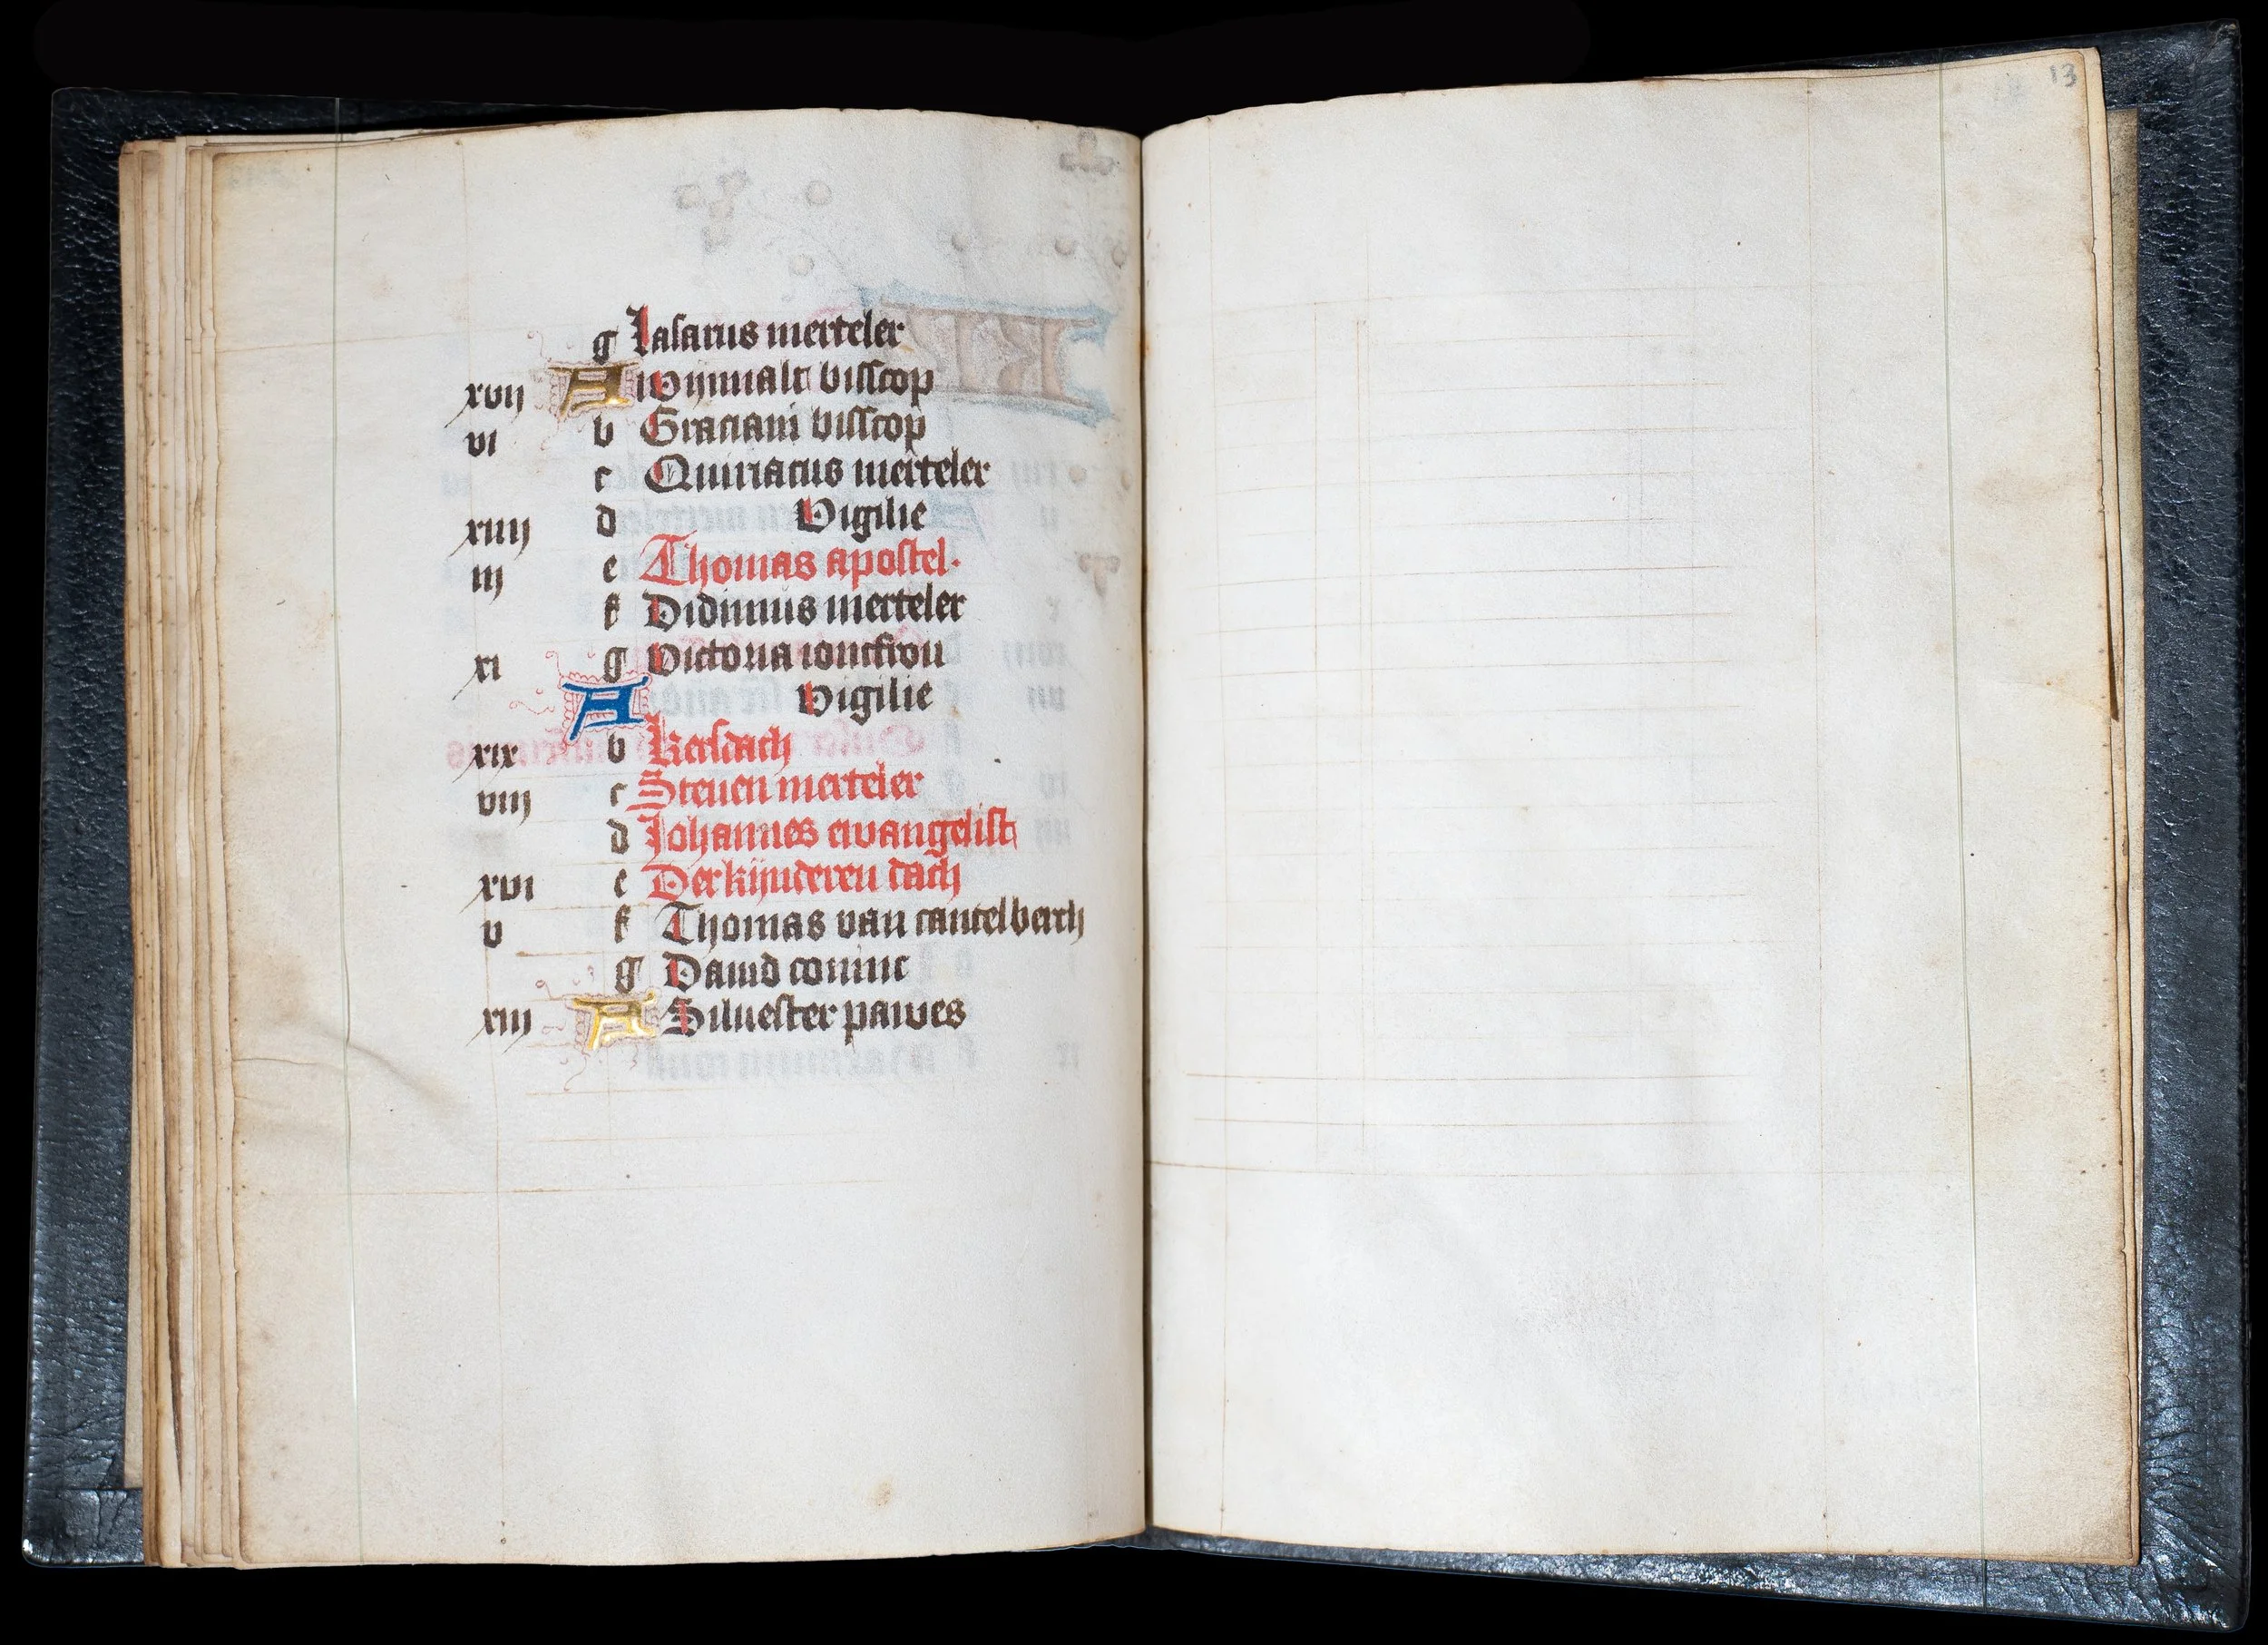 13
g Lasarus merteler
xvij A wijnnalt bisscop
vi b Graciani bisscop
c Quiriacus merteler
xiiij d Vigilie
iij e Thomas apostel.
f Didimus merteler
xi g victoria ioncfrou
A vigilie
xix b kersdach
viij c Steuen merteler
d Johannes ewangelist
xvi e Der kijnderen dach
v f Thomas van cantelberch
g Dauid coninc
xiij A Siluester pawes